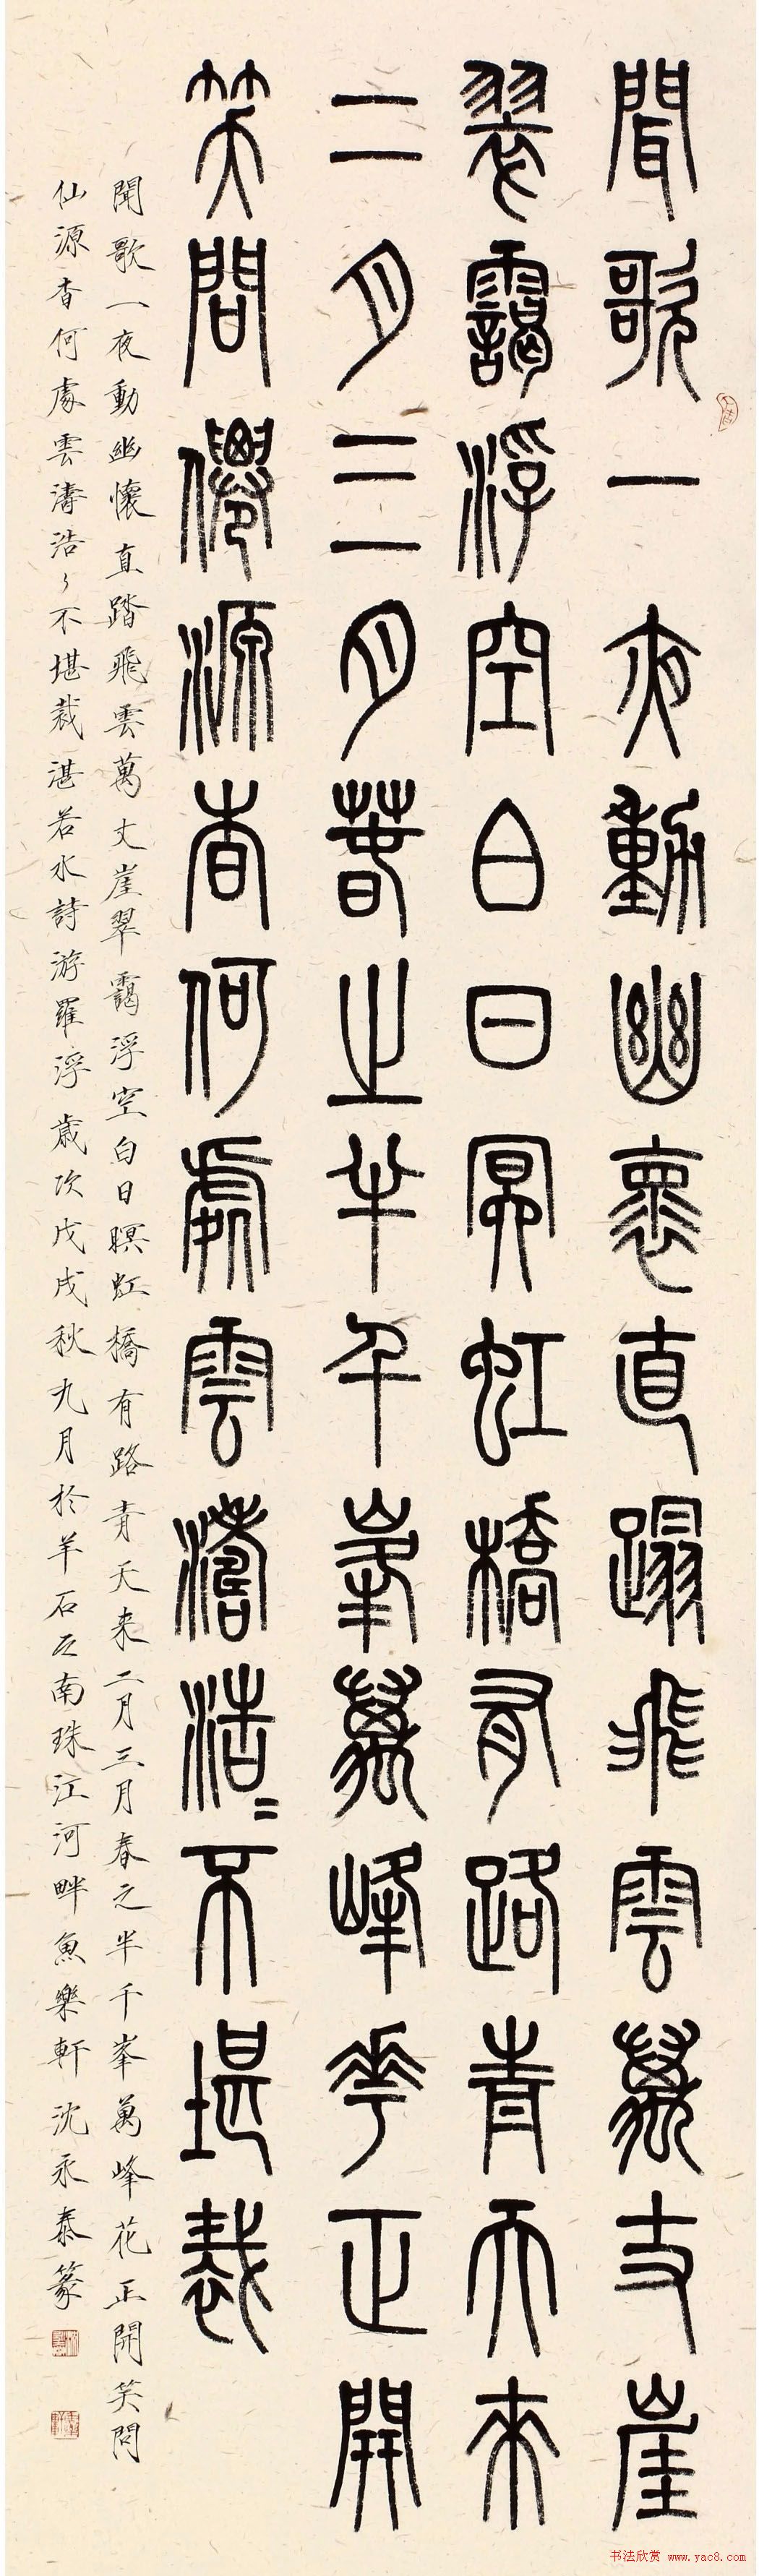 聞歌一夜動幽褱直蹋飛雲萬丈崖
翠靄浮空白日冥虹橋有路青天來
二月三月萅之半千峯萬峰華正開
笑問僊源杳何處雲濤浩〻不堪裁
聞歌一夜動幽懷直踏飛雲萬丈崖翠靄浮空白日暝虹橋有路青天來二月三月春之半千峯萬峰花正開笑問
仙源杳何處雲濤浩〻不堪裁湛若水詩游羅浮歲次戊戌秋九月於羊石之南珠江河畔魚樂軒沈永泰篆
书法欣赏 www.yac8.com